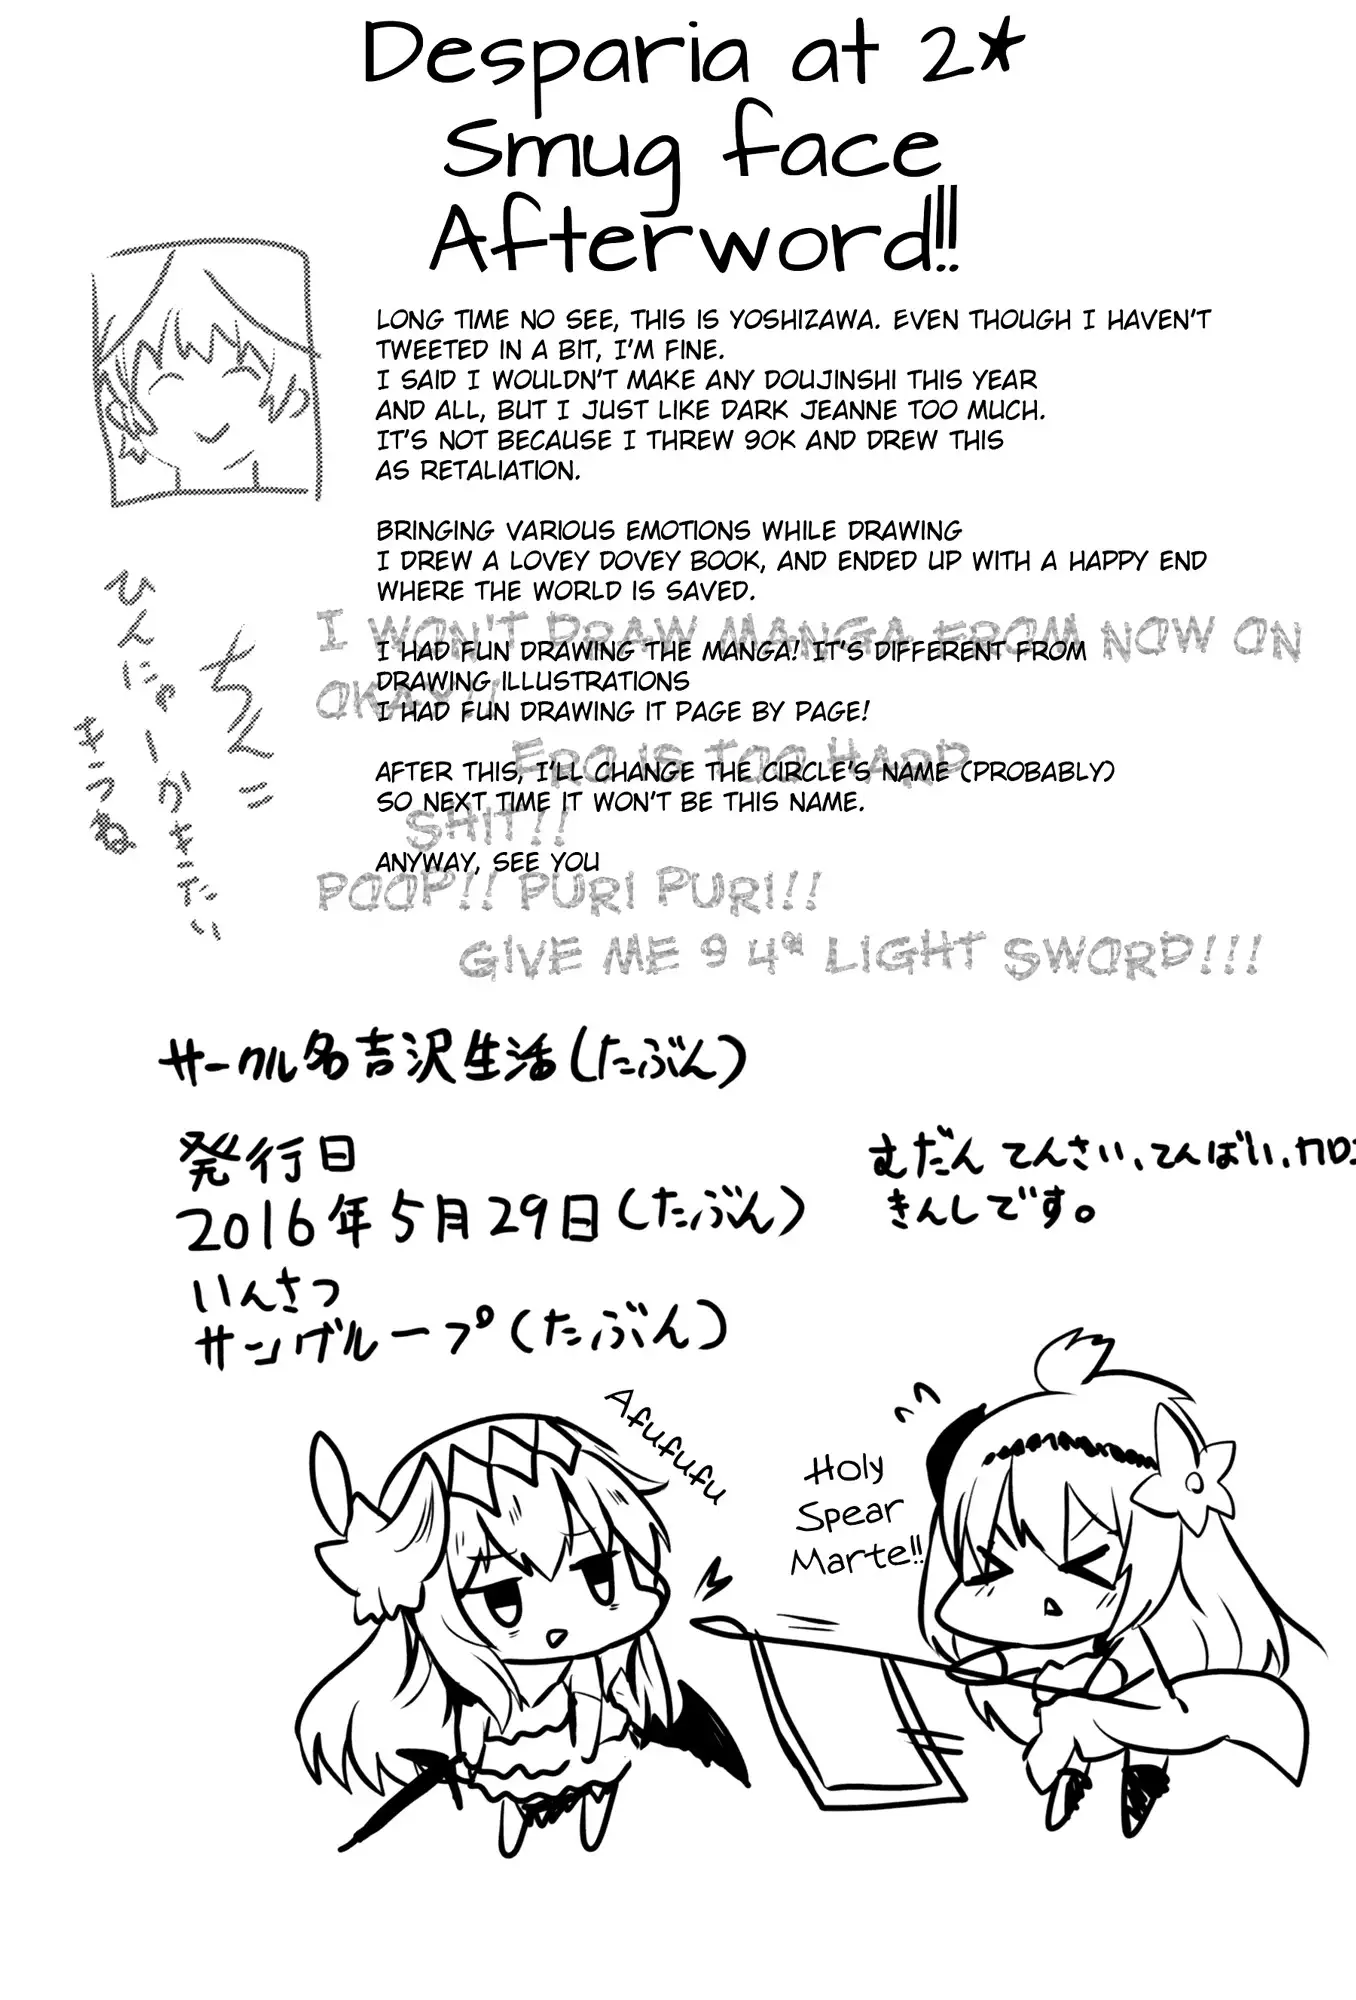 Desparia at 2*
Smug face
Afterword!!!
LONG TIME NO SEE, THIS IS YOSHIZAWA. EVEN THOUGH I HAVEN'T
TWEETED IN A BIT, I'M FINE.
I SAID I WOULDN'T MAKE ANY DOUJINSHI THIS YEAR
AND ALL, BUT I JUST LIKE DARK JEANNE TOO MUCH.
IT'S NOT BECAUSE I THREW 90K AND DREW THIS
AS RETALIATION.
BRINGING VARIOUS EMOTIONS WHILE DRAWING
I DREW A LOVEY DOVEY BOOK, AND ENDED UP WITH A HAPPY END
WHERE THE WORLD IS SAVED.
I HAD FUN DRAWING THE MANGA! IT'S DIFFERENT FROM
DRAWING ILLUSTRATIONS
I HAD FUN DRAWING IT PAGE BY PAGE!
AFTER THIS, I'LL CHANGE THE CIRCLE'S NAME (PROBABLY)
SO NEXT TIME IT WON'T BE THIS NAME.
ANYWAY, SEE YOU
I WON'T DRAW MANGA FROM NOW ON
OKAY!!
ERO IS TOO HARD
SHIT!!
POOP!! PURI PURI!!
GIVE ME 9 4* LIGHT SWORD!!!
ちんこ
ひんにゅーかきたい
きつね
サークル名吉沢生活(たぶん)
発行日
2016年5月29日(たぶん)
いんさつ
サングループ(たぶん)
むだん てんさい、てんばい、
きんしです。
Afufufu
Holy
Spear
Marte!!